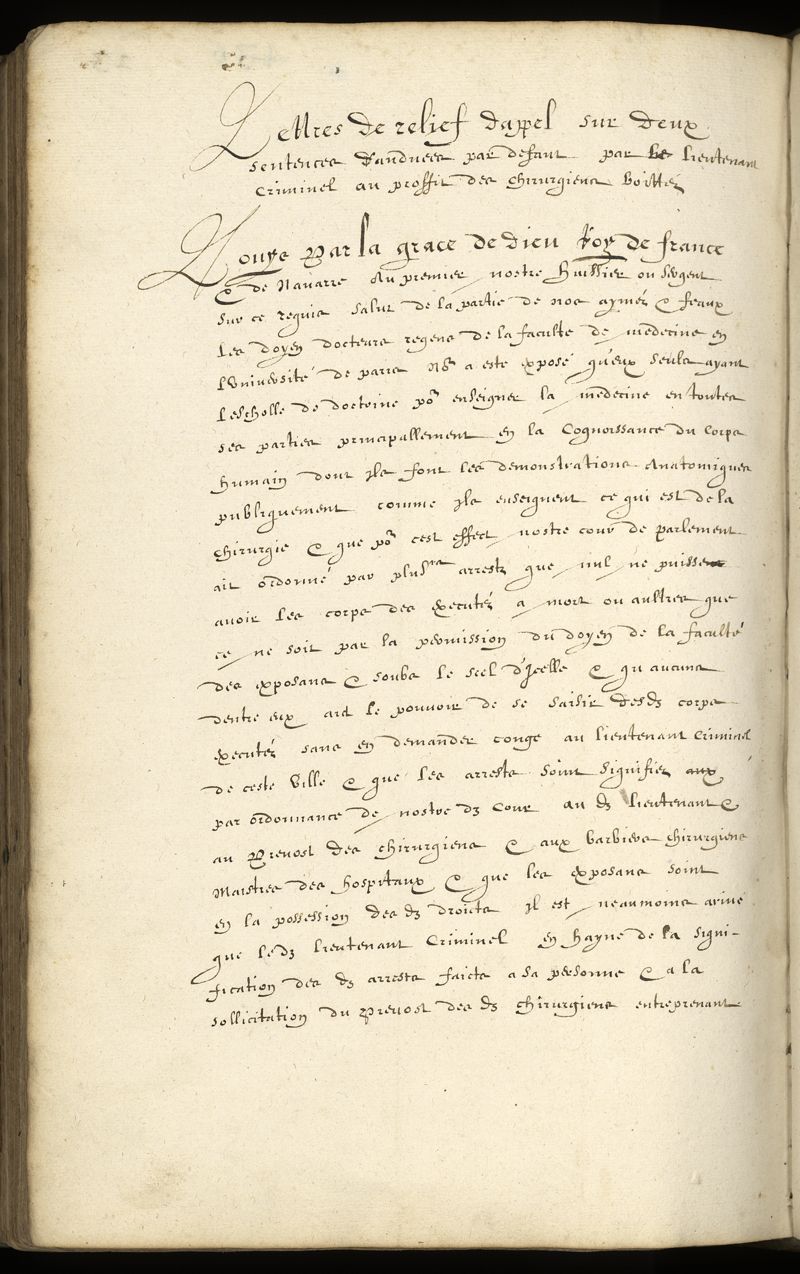 Lettres de relief dappel sur deux
sentences randues par defaut par le lieutenant
Criminel au proffit des chirurgiens boittés
Louys Par la grace de Dieu Roy de france
& de Navarre Au premier nostre huissier ou sergent
sur ce requis salut de la partie de nos aymés & feaux
Les doyen docteurs regens de la faculté de medecine en
lUniversité de paris Ns a esté exposé qu'eux seuls ayant
lescholle de doctrine por enseigner la medecine en toutes
ses parties principallement en la Cognoissance du Corps
humain dont ils font les demonstrations Anatomiques
publiquement comme ils enseignent ce qui est de la
chirurgie & que por cest effect nostre cour de parlement
ait ordonné par plusrs arrests que nul ne puisse
avoir les corps des executés a mort ou aultres que
ce ne soit par la permission du doyen de la faculté
des exposans & soubs le scel d'Icelle & qu aucuns
dentre eux aid le pouvoir de se saisir desdz corps
executés sans en demander congé au lieutenant Criminel
de ceste ville & que les arrests soint signifiés aux
par ordonnance de nostre dz Cour au dz lieutenant &
au Prevost des chirurgiens & aux barbiers chirurgiens
Maistres des hospitaux & que les exposans soint
en la possession des dz droicts Il est neaumoins arivé
que ledz lieutenant Criminel en hayne de la signi-
fication des dz arrests faicte a sa personne & a la
sollicitation du Prevost des dz chirurgiens entreprenant